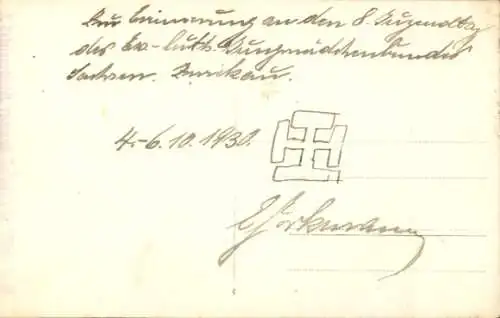 Zur Erinnerung an den 8. Jugendtag
des Ev.-luth. Jungmädchenbundes
Sachsen. Zwickau.
4.-6.10.1930.